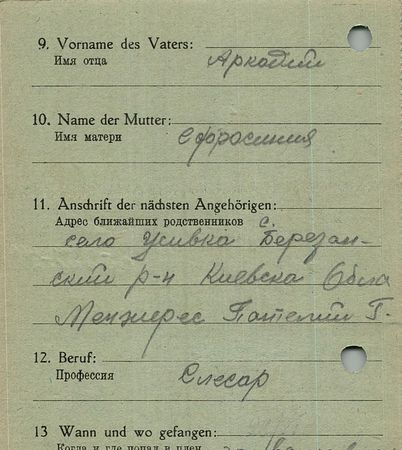 9. Vorname des Vaters:
Имя отца Аркадий
10. Name der Mutter:
Имя матери Ефросиния
11. Anschrift der nächsten Angehörigen:
Адрес ближайших родственников с.
село Усивка Березан-
ский р-н Киевска Обла
Т.
12. Beruf:
Профессия Слесар
13 Wann und wo gefangen:
Когда и где попал в плен